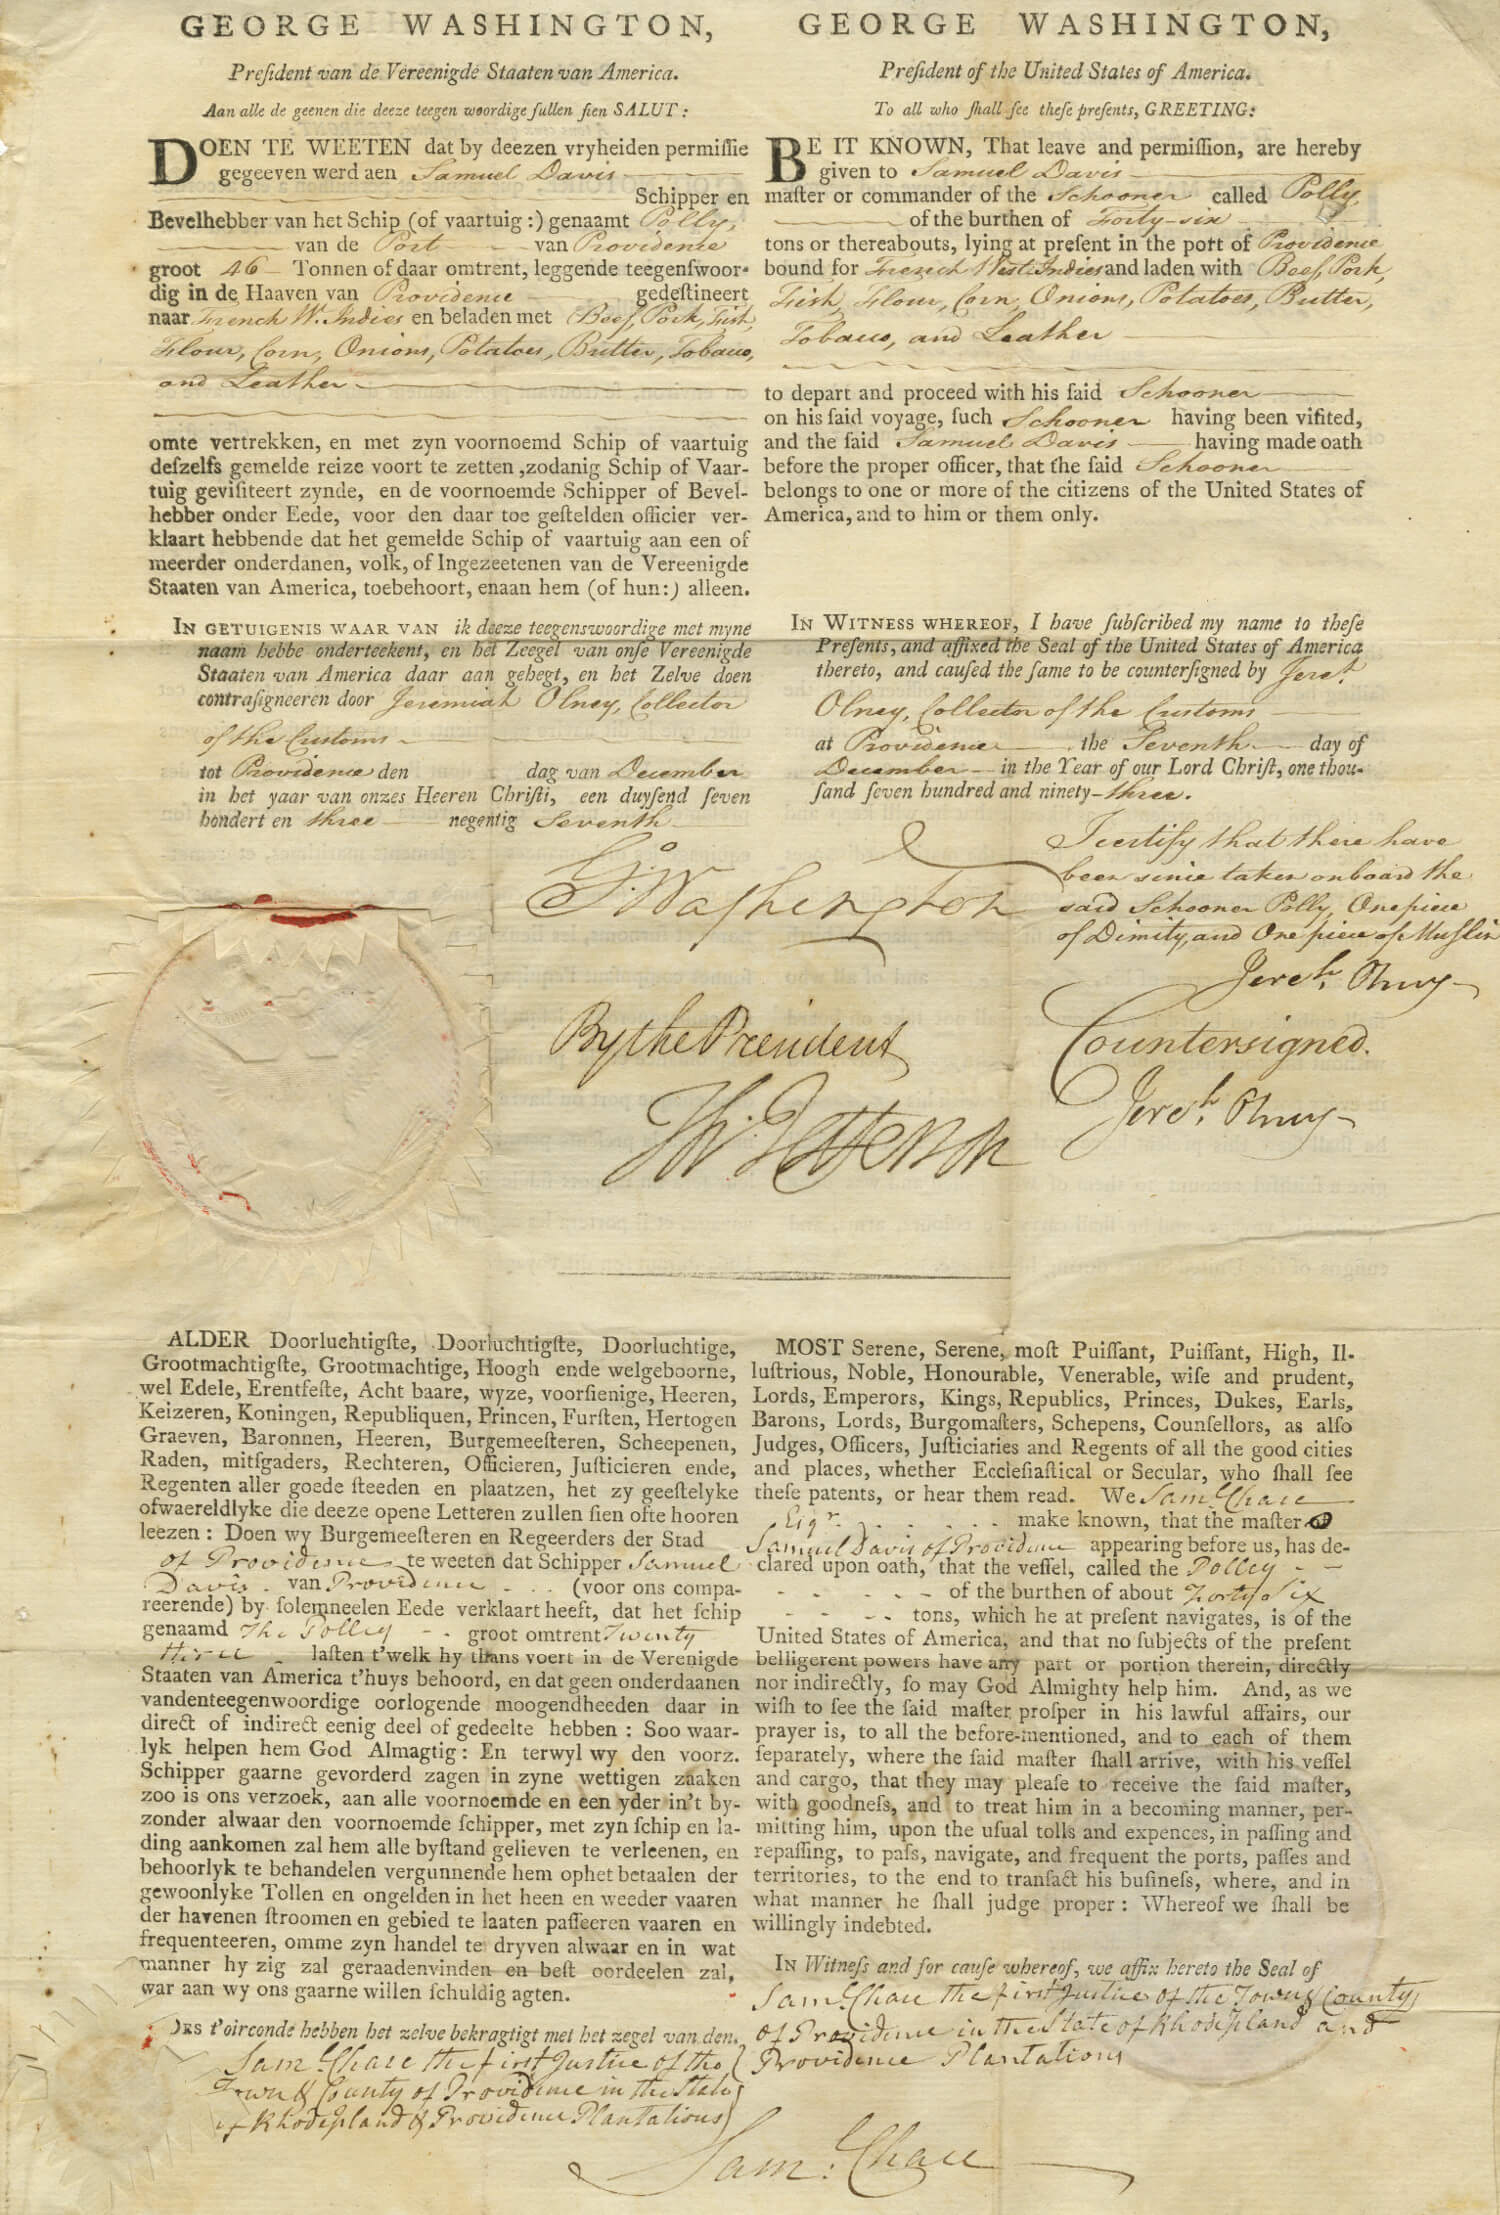 GEORGE WASHINGTON,
Preſident van de Vereenigde Staaten van America.
Aan alle de geenen die deeze teegen woordige ſullen ſien SALUT:
DOEN TE WEETEN dat by deezen vryheiden permiſſie
gegeeven werd aen Samuel Davis
Schipper en
Bevelhebber van het Schip (of vaartuig:) genaamt Polly,
van de Port van Providence
groot 46 Tonnen of daar omtrent, leggende teegenſwoor-
dig in de Haaven van Providence gedeſtineert
naar French W. Indies en beladen met Beef, Pork, Fish,
Flour, Corn, Onions, Potatoes, Butter, Tobacco,
and Leather
omte vertrekken, en met zyn voornoemd Schip of vaartuig
deſzelfs gemelde reize voort te zetten, zodanig Schip of Vaar-
tuig geviſiteert zynde, en de voornoemde Schipper of Bevel-
hebber onder Eede, voor den daar toe geſtelden officier ver-
klaart hebbende dat het gemelde Schip of vaartuig aan een of
meerder onderdanen, volk, of Ingezeetenen van de Vereenigde
Staaten van America, toebehoort, enaan hem (of hun:) alleen.
IN GETUIGENIS WAAR VAN ik deeze teegenswoordige met myne
naam hebbe onderteekent, en het Zeegel van onſe Vereenigde
Staaten van America daar aan gehegt, en het Zelve doen
contraſigneeren door Jeremiah Olney, Collector
of the Customs
tot Providence den dag van December
in het yaar van onzes Heeren Chriſti, een duyſend ſeven
hondert en three negentig Seventh
GEORGE WASHINGTON,
Preſident of the United States of America.
To all who ſhall ſee theſe preſents, GREETING:
BE IT KNOWN, That leave and permiſſion, are hereby
given to Samuel Davis
maſter or commander of the Schooner called Polly,
of the burthen of Forty-six
tons or thereabouts, lying at preſent in the port of Providence
bound for French West Indies and laden with Beef, Pork,
Fish, Flour, Corn, Onions, Potatoes, Butter,
Tobacco, and Leather
to depart and proceed with his ſaid Schooner
on his ſaid voyage, ſuch Schooner having been viſited,
and the ſaid Samuel Davis having made oath
before the proper officer, that the ſaid Schooner
belongs to one or more of the citizens of the United States of
America, and to him or them only.
IN WITNESS WHEREOF, I have ſubſcribed my name to theſe
Preſents, and affixed the Seal of the United States of America
thereto, and cauſed the ſame to be counterſigned by Jereh.
Olney, Collector of the Customs
at Providence the Seventh day of
December in the Year of our Lord Chriſt, one thou-
ſand ſeven hundred and ninety-three.
I certify that there have
been since taken onboard the
said Schooner Polly, One piece
of Dimity, and One piece of Muslin
Jereh. Olney
G. Washington
By the President
Th: Jefferson
Countersigned.
Jereh. Olney
ALDER Doorluchtigſte, Doorluchtigſte, Doorluchtige,
Grootmachtigſte, Grootmachtige, Hoogh ende welgeboorne,
wel Edele, Erentfeſte, Acht baare, wyze, voorſienige, Heeren,
Keizeren, Koningen, Republiquen, Princen, Furſten, Hertogen
Graeven, Baronnen, Heeren, Burgemeeſteren, Scheepenen,
Raden, mitſgaders, Rechteren, Officieren, Juſticieren ende,
Regenten aller goede ſteeden en plaatzen, het zy geeſtelyke
ofwaereldlyke die deeze opene Letteren zullen ſien ofte hooren
leezen: Doen wy Burgemeeſteren en Regeerders der Stad
of Providence te weeten dat Schipper Samuel
Davis van Providence (voor ons compa-
reerende) by ſolemneelen Eede verklaart heeft, dat het ſchip
genaamd The Polley groot omtrent Twenty
three laſten t'welk hy thans voert in de Verenigde
Staaten van America t'huys behoord, en dat geen onderdaanen
vandenteegenwoordige oorlogende moogendheeden daar in
direct of indirect eenig deel of gedeelte hebben: Soo waar-
lyk helpen hem God Almagtig: En terwyl wy den voorz.
Schipper gaarne gevorderd zagen in zyne wettigen zaaken
zoo is ons verzoek, aan alle voornoemde en een yder in't by-
zonder alwaar den voornoemde ſchipper, met zyn ſchip en la-
ding aankomen zal hem alle byſtand gelieven te verleenen, en
behoorlyk te behandelen vergunnende hem ophet betaalen der
gewoonlyke Tollen en ongelden in het heen en weeder vaaren
der havenen ſtroomen en gebied te laaten paſſeeren vaaren en
frequenteeren, omme zyn handel te dryven alwaar en in wat
manner hy zig zal geraadenvinden en beſt oordeelen zal,
war aan wy ons gaarne willen ſchuldig agten.
DES t'oirconde hebben het zelve bekragtigt met het zegel van den.
Saml. Chace the first Justice of the
Town & County of Providence in the State
of Rhodeisland & Providence Plantations
MOST Serene, Serene, moſt Puiſſant, Puiſſant, High, Il-
luſtrious, Noble, Honourable, Venerable, wiſe and prudent,
Lords, Emperors, Kings, Republics, Princes, Dukes, Earls,
Barons, Lords, Burgomaſters, Schepens, Counſellors, as alſo
Judges, Officers, Juſticiaries and Regents of all the good cities
and places, whether Eccleſiaſtical or Secular, who ſhall ſee
theſe patents, or hear them read. We Saml. Chace
Esqr. make known, that the maſter of
Samuel Davis of Providence appearing before us, has de-
clared upon oath, that the veſſel, called the Polley
of the burthen of about Forty Six
tons, which he at preſent navigates, is of the
United States of America, and that no ſubjects of the preſent
belligerent powers have any part or portion therein, directly
nor indirectly, ſo may God Almighty help him. And, as we
wiſh to ſee the ſaid maſter proſper in his lawful affairs, our
prayer is, to all the before-mentioned, and to each of them
ſeparately, where the ſaid maſter ſhall arrive, with his veſſel
and cargo, that they may pleaſe to receive the ſaid maſter,
with goodneſs, and to treat him in a becoming manner, per-
mitting him, upon the uſual tolls and expences, in paſſing and
repaſſing, to paſs, navigate, and frequent the ports, paſſes and
territories, to the end to tranſact his buſineſs, where, and in
what manner he ſhall judge proper: Whereof we ſhall be
willingly indebted.
IN Witneſs and for cauſe whereof, we affix hereto the Seal of
Saml. Chace the first Justice of the Town & County,
of Providence in the State of Rhodeisland and
Providence Plantations
Sam: Chace